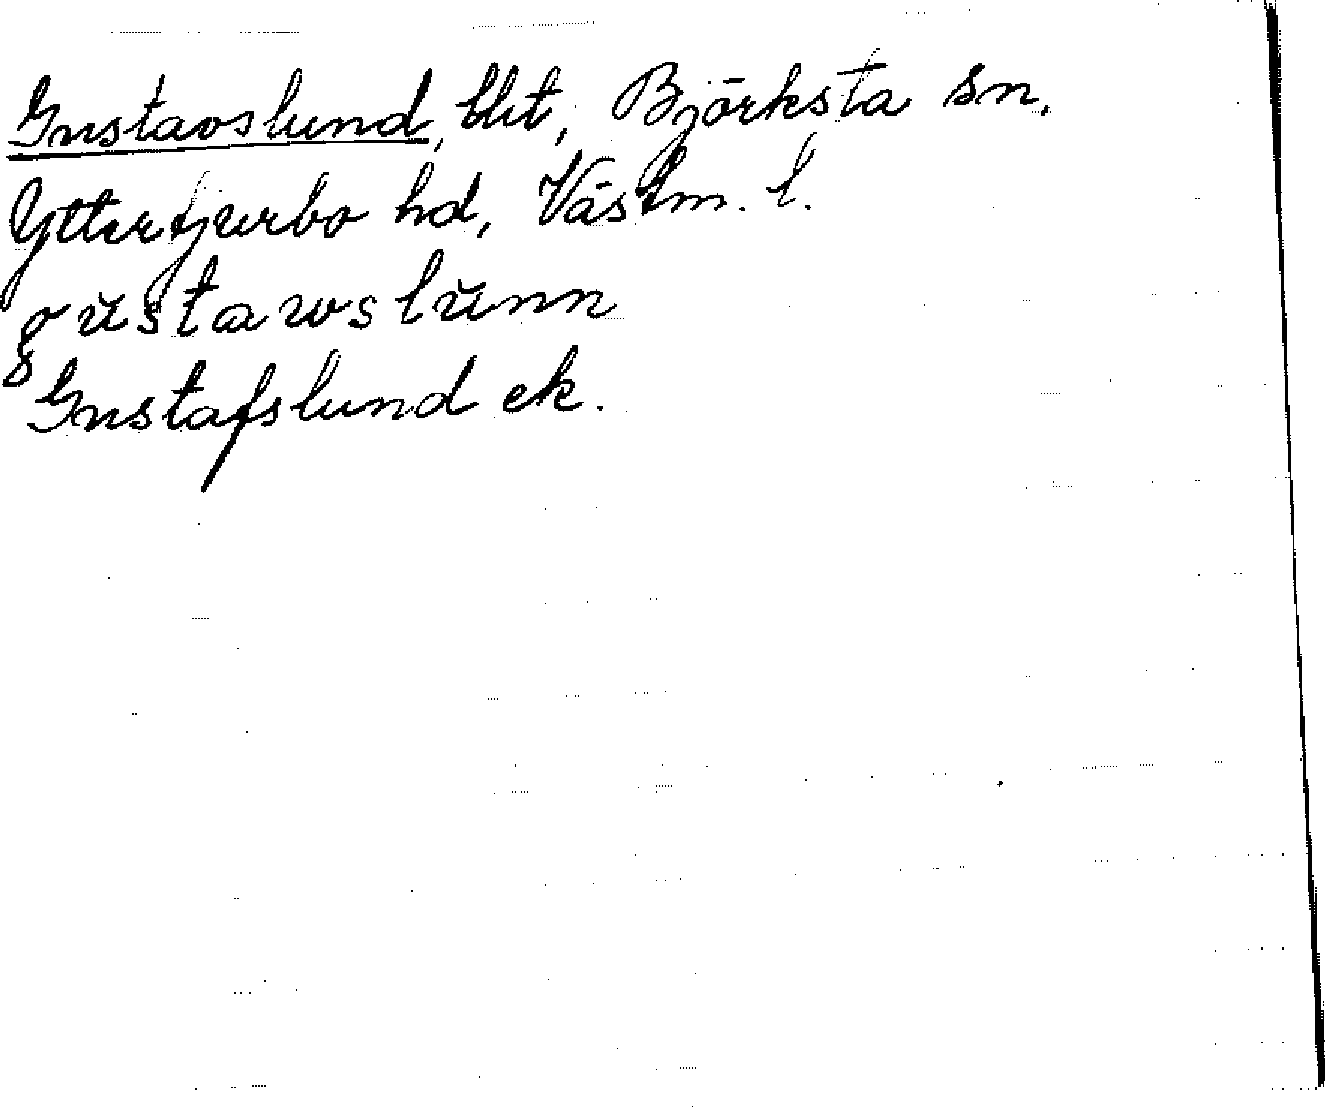 Gustavslund, tlt, Björksta sn.
Yttertjurbo hd, Västm. l.
gŭstawslŭnn
Gustafslund ek.